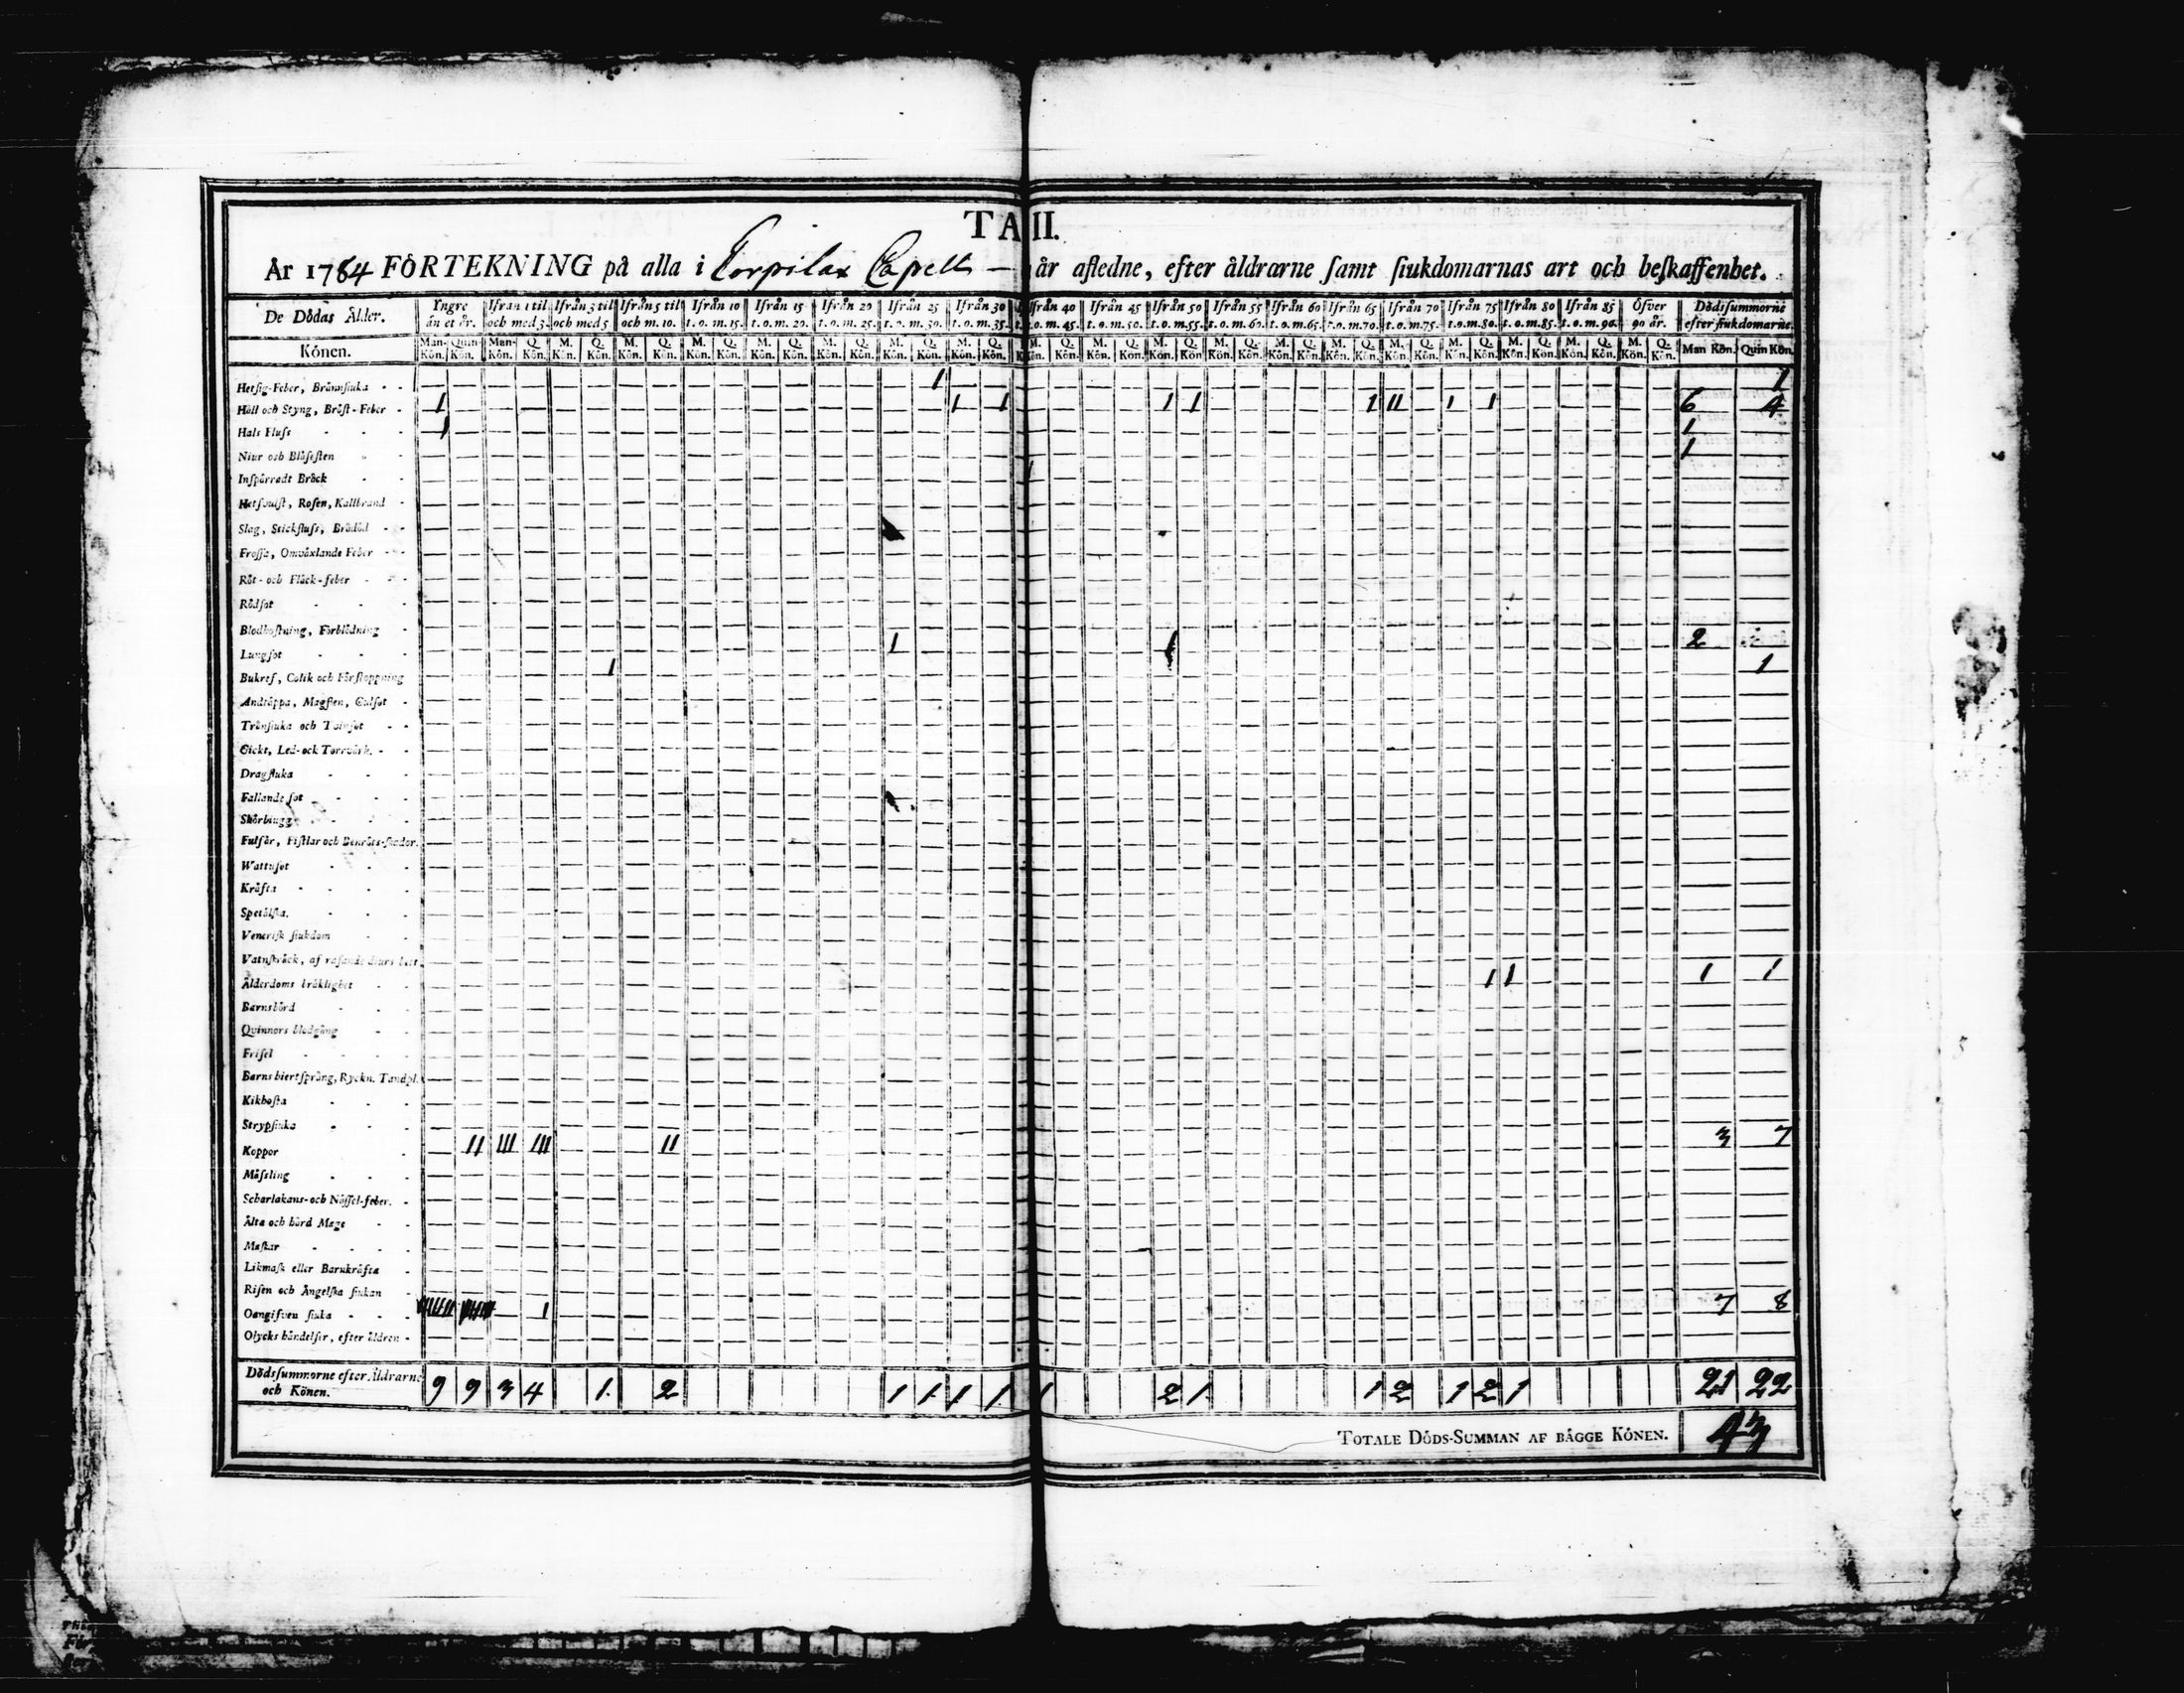 TA II.
År 1764 FÖRTEKNING på alla i Corpilax Capell — år afledne, efter åldrarne samt siukdomarnas art och beskaffenhet.
De Dödas Ålder. Yngre än et år. Ifrån 1 til och med 3. Ifrån 3 til och med 5 Ifrån 5 til och m. 10. Ifrån 10 t. o. m. 15. Ifrån 15 t. o. m. 20. Ifrån 20 t. o. m. 25. Ifrån 25 t. o. m. 30. Ifrån 30 t. o. m. 35. Ifrån 40 t. o. m. 45. Ifrån 45 t. o. m. 50. Ifrån 50 t. o. m. 55. Ifrån 55 t. o. m. 60. Ifrån 60 t. o. m. 65. Ifrån 65 t. o. m. 70. Ifrån 70 t. o. m. 75. Ifrån 75 t. o. m. 80. Ifrån 80 t. o. m. 85. Ifrån 85 t. o. m. 90. Öfver 90 år. Dödssummorne efter siukdomarne.
Könen. Man-Kön. Quin Kön. Man-kön. Q. Kön. M. Kön. Q. Kön. M. Kön. Q. Kön. M. Kön. Q. Kön. M. Kön. Q. Kön. M. Kön. Q. Kön. M. Kön. Q. Kön. M. Kön. Q. Kön. M. Kön. Q. Kön. M. Kön. Q. Kön. M. Kön. Q. Kön M. Kön. Q. Kön. M. Kön. Q. Kön. M. Kön. Q. Kön. M. Kön. Q. Kön. M. Kön. Q. Kön. M. Kön. Q. Kön. M. Kön. Q. Kön. M. Kön. Q. Kön. Man Kön. Quin Kön.
Hetsig-Feber, Brännsiuka 1 1
Håll och Styng, Bröst-Feber 1 1 1 1 1 1 II 1 1 6 4
Hals Fluss 1 1
Niur och Blåsesten 1
Inspärradt Bråck 1
Hetsvulst, Rosen, Kallbrand
Slag, Stickfluss, Brådöd
Frossa, Omväxlande Feber
Röt- och Fläck-feber
Rödsot
Blodhostning, Förblödning
Lungsot 1 1 2
Bukref, Colik och Förstoppning 1 1
Andtäppa, Magsten, Gulsot
Trånsiuka och Tvinsot
Gickt, Led- och Torrvärk.
Dragsiuka
Fallande sot
Skörbiugg
Fulsår, Fistlar och Benröts-skador.
Wattusot
Kräfta
Spetälska.
Venerisk siukdom
Vatnskräck, af rasande diurs bett
Ålderdoms bräklighet 1 1 1 1
Barnsbörd
Qvinnors blodgång
Frisel
Barns hiertsprång, Ryckn. Tandpl.
Kikhosta
Strypsiuka
Koppor II III III II 3 7
Mässling
Scharlakans- och Nässel-feber.
Älta och hård Mage
Maskar
Likmask eller Barnkräfta
Risen och Ängelska siukan
Oangifven siuka IIIIIII IIIIIII 1 7 8
Olycks händelser, efter åldren
Dödssummorne efter Åldrarne och Könen. 9 9 3 4 1. 2 1 1 1 1 1 2 1 1 2 1 2 1 21 22
TOTALE DÖDS-SUMMAN AF BÄGGE KÖNEN. 43